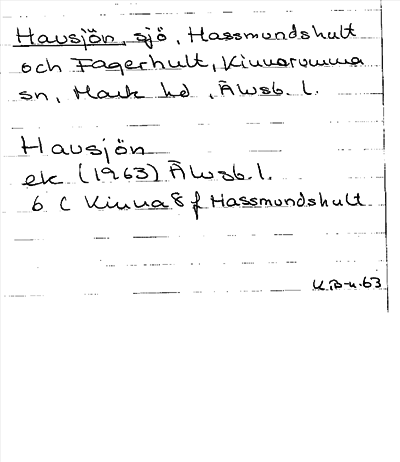 Hausjön, sjö, Hassmundshult
och Fagerhult, Kinnarumma
sn, Mark hd, Älvsb. l.
Hausjön
ek (1963) Älvsb. l.
6 C Kinna 8 f Hassmundshult
K.B-n.63